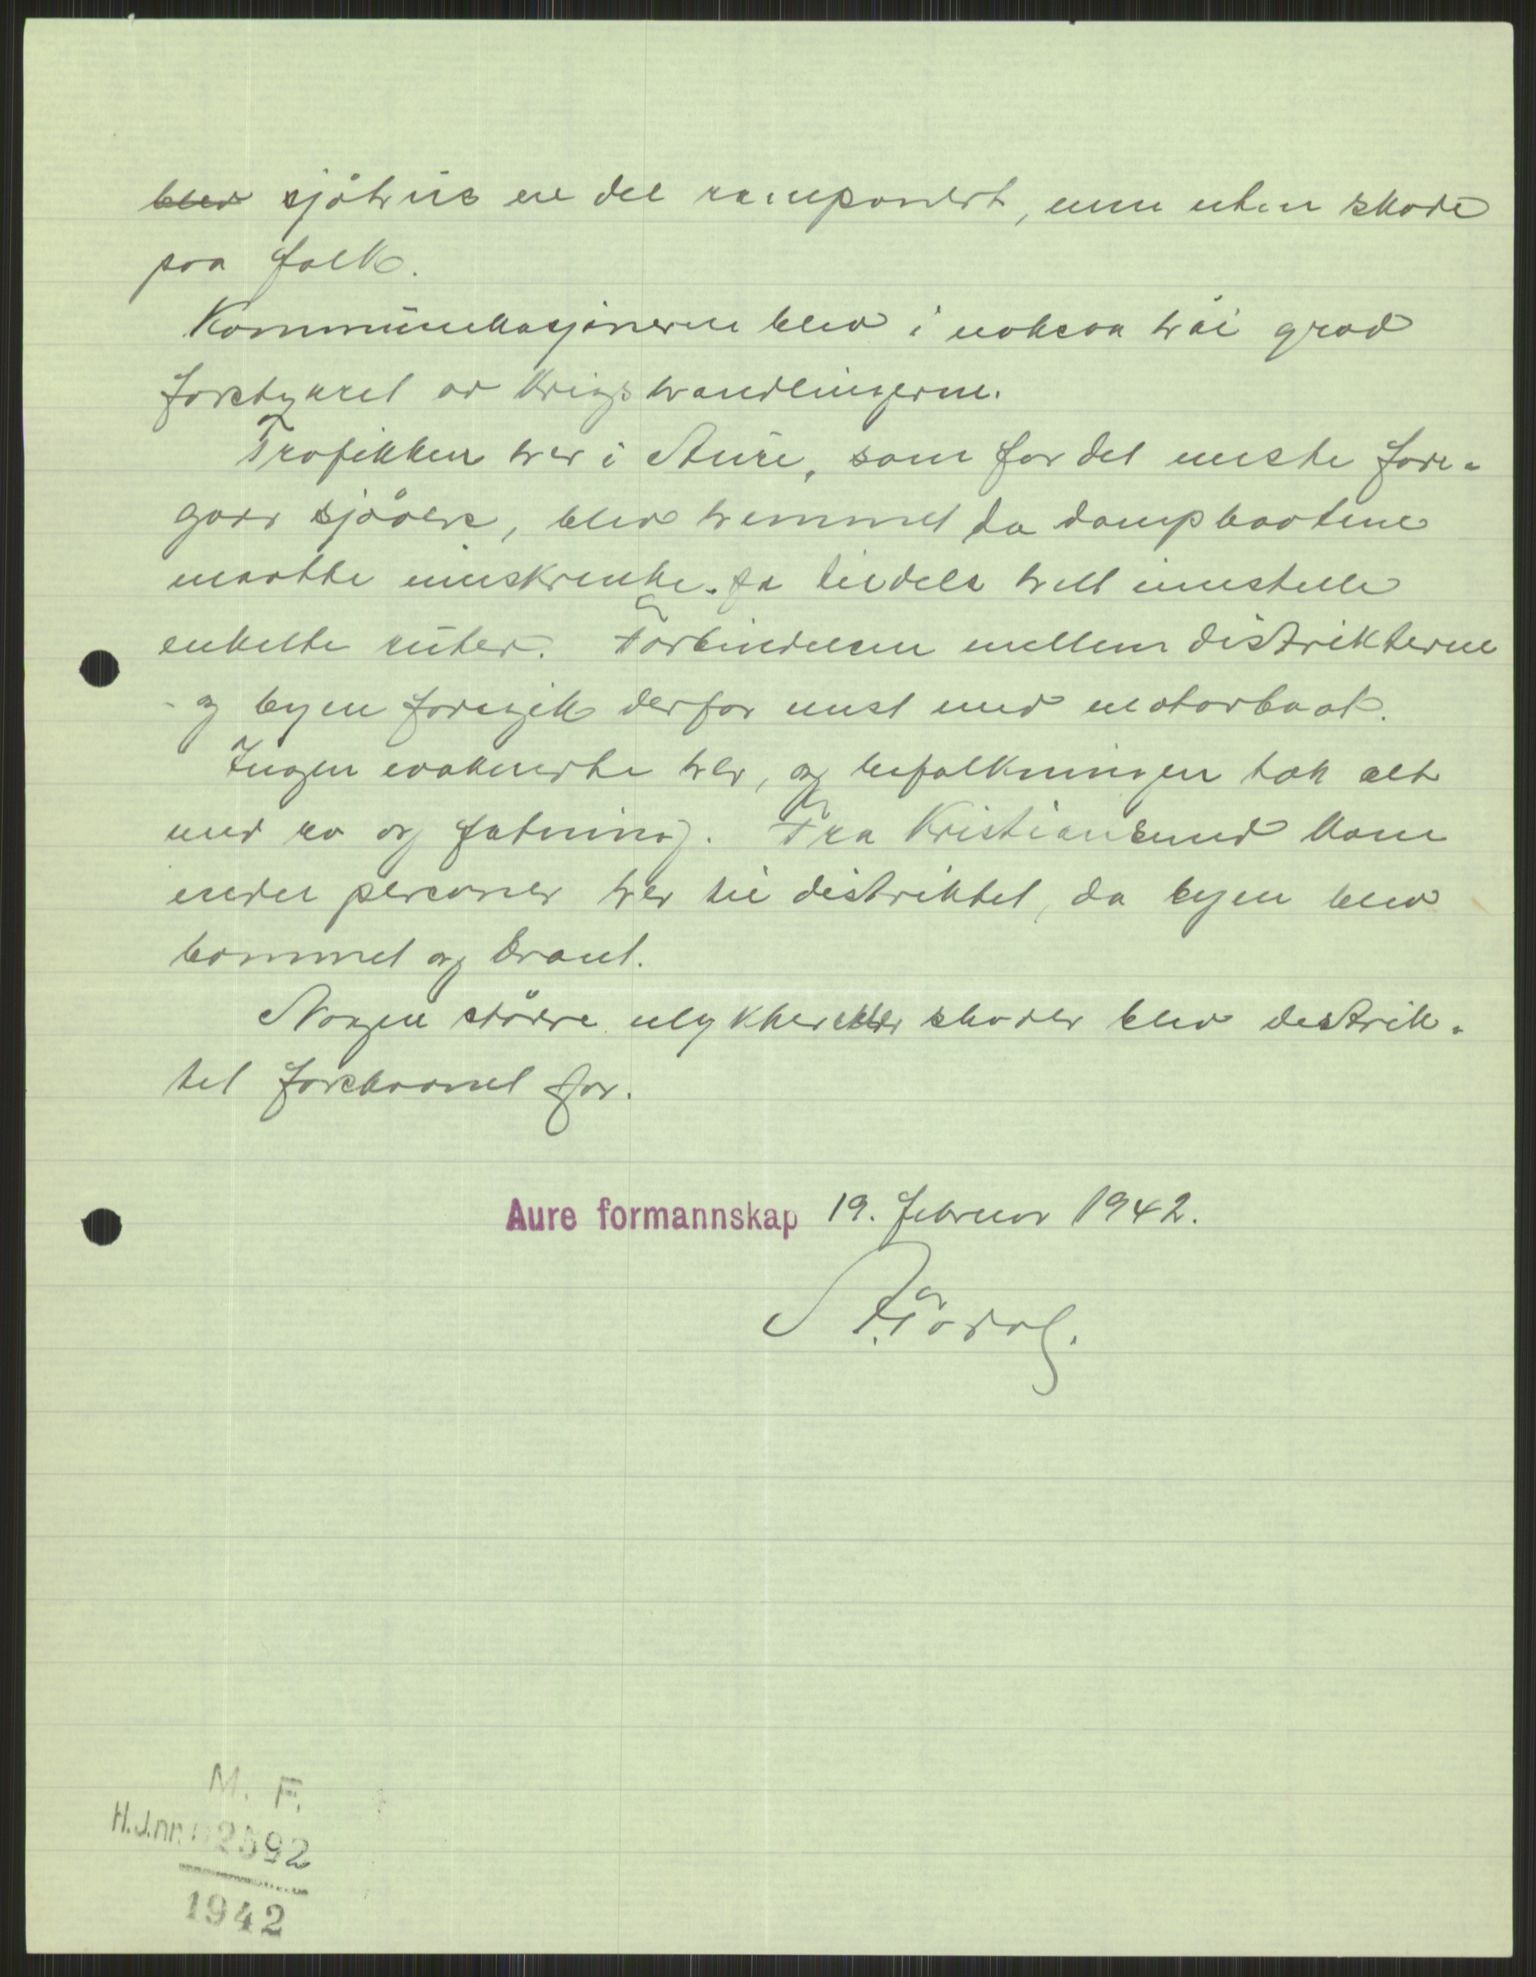 sjöhus en del ramponert, men uten skade
paa folk.
Kommunikasjonerne blev i noksaa höi grad
forstyrret av krigshandlingerne.
Trafikken her i Aure, som for det meste fore-
gaar sjöveis, blev hemmet da dampbaatene
maatte innskrenke, ja tildels helt innstille
enkelte ruter. Forbindelsen mellem distrikterne
og byen foregik derfor mest med motorbaat.
Ingen evakuerte her, og befolkningen tok alt
med ro og fatning. Fra Kristiansund kom
endel personer her til distriktet, da byen blev
bommet og brant.
Nogen större ulykker eller skader blev distrik-
tet forskaanet for.
Aure formannskap 19. februar 1942.
M. F.
H.J.nr. 2592
1942